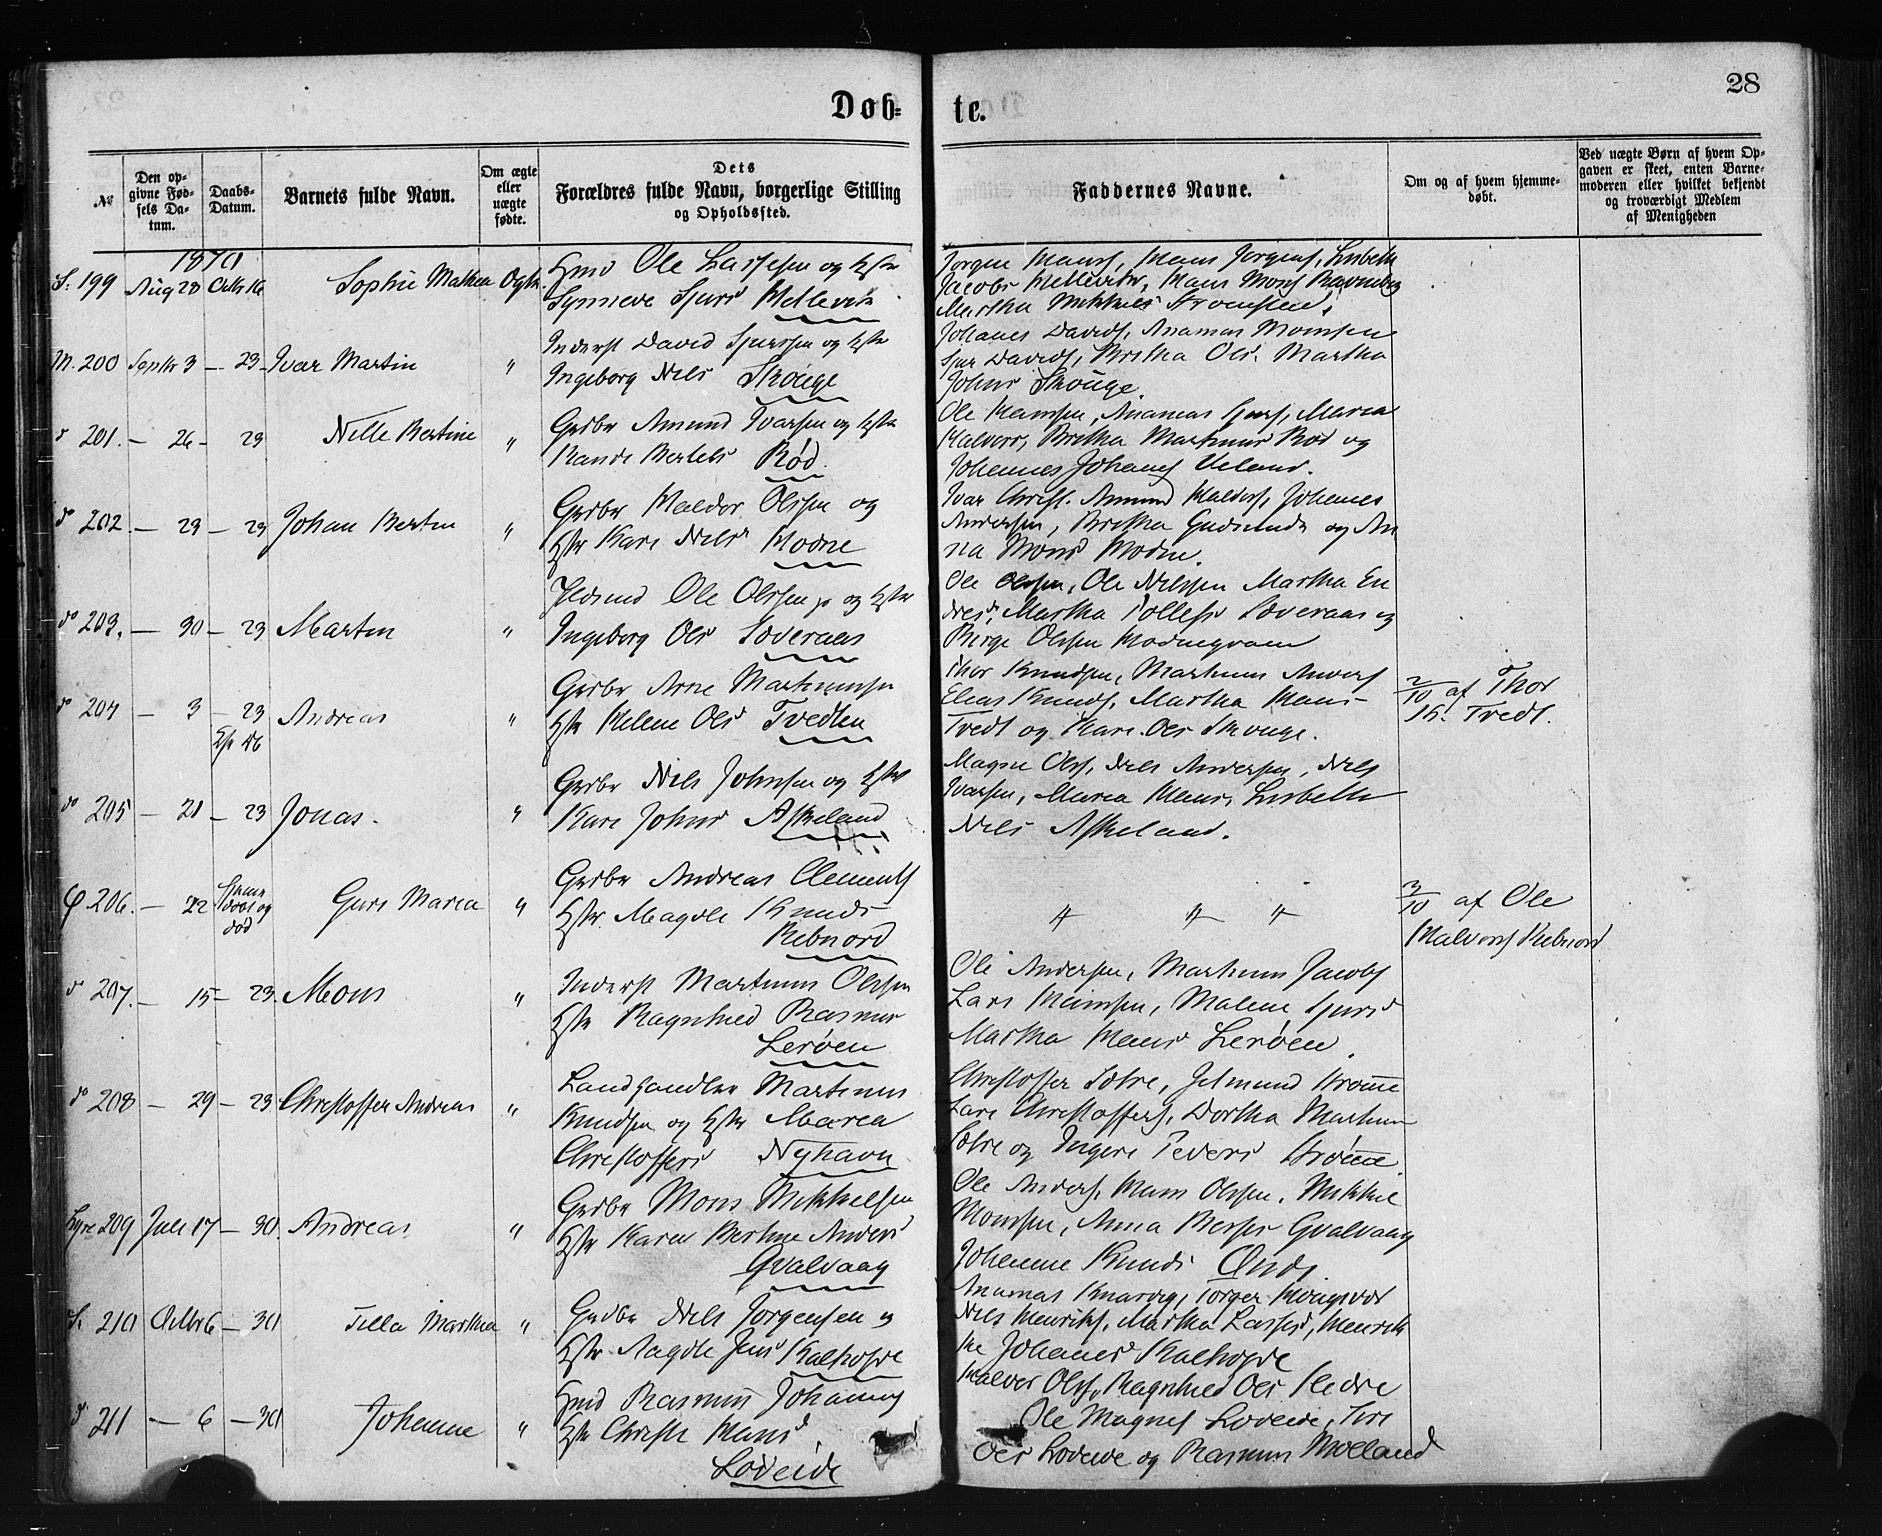 28
Døb-
te.
№
Den op-
givne Fød-
sels Da-
tum.
Daabs-
Datum.
Barnets fulde Navn.
Om ægte
eller
uægte
fødte.
Dets
Forældres fulde Navn, borgerlige Stilling
og Opholdssted.
Faddernes Navne.
Om og af hvem hjemme-
døbt.
Ved uægte Børn af hvem Op-
gaven er skeet, enten Barne-
moderen eller hvilket bekjendt
og troværdigt Medlem
af Menigheden
1870
S. 199 Aug 28 Octb 16 Sophie Mathea Ægte
Ole Larssen og Hstr
Synneve Sjurs Hellevik
Jørgen Hansf, Hans Jørgensf, Lisbeth
Jacobs Hellevik, Hans Monsf Ravnberg
Martha Mikkels
M. 200 Septbr 3 — 23 Ivar Martin "
Inderst David Sjursen og Hstr
Ingeborg Niels Skouge
Johanes Davidsf, Ananias Monssen
Sjur Davidsf, Britha Ols, Martha
Johns Skouge.
d° 201. — 26 — 23 Nille Bertine "
Grdbr Amund Ivarsen og Hstr
Bertels Rød
Ole Hanssen, Ananias Sjursf, Maria
Halvors, Britha Martinus Rød og
Johannes Johansf Ueland.
d° 202 — 23 — 23 Johan Bertin "
Grdbr Haldor Olssen og
Hstr Kari Niels Hodne
Ivar Christ. Amund Haldorsf, Johanes
Andersen, Britha Gudmunds og An
na Mons Hodne.
d° 203. — 30 — 23 Martin "
Ole Olssen og Hstr
Ingeborg Ols Loveraas
Ole Olssen, Ole Nilssen Martha En
dres, Martha Tollefs Loveraas og
Birge Olssen
d° 204 — 3 — 23 Andreas "
Grdbr Arne Martinussen
Hstr Helene Ols Tvedten
Thor Knudsen, Martinus Andersf
Elias Knudsf, Martha Hans
Tvedt og Kari Ols Skouge.
2/10 af Thor
K. Tvedt.
d° 205 — 21 — 23 Jonas. "
Grdbr Niels Johnsen og Hstr
Kari Johns Askeland
Magne Olsf, Niels Andersen, Niels
Ivarsen, Maria Hans, Lisbeth
Niels Askeland.
206. — 22 Hjemme
døbt og
død Guri Maria "
Grdbr Andreas Clementsf
Hstr. Magdle Knuds
Rebnord
" " "
3/10 af Ole
Halvorsf Rebnord
d° 207. — 15 — 23. Mons "
Inderst Martinus Olssen
Hstr Ragnhild Rasmus
Lerøen
Ole Andersen, Martinus Jacobsf
Lars Hanssen, Malene Sjurs
Martha Hans Lerøen.
d° 208 — 29 — 23 Christoffer Andreas "
Landhandler Martinus
Knudsen og Hstr Maria
Christoffers Nyhavn
Christoffer Sotre, Gjelmund Strømme
Lars Christoffersf, Dorthea Martinus
Sotre og Ingeri Peders Strømme.
209 Juli 17 — 30. Andreas "
Grdbr Mons Mikkelsen
Hstr Karen Bertine Anders
Gvalvaag
Ole Andersf, Hans Olssen, Mikkel
Monssen, Anna Gvalvaag
Johanne Knuds
S. 210 Octbr 6 — 30 Tella Marthea "
Grdbr Niels Jørgensen og
Hstr Aagdte Jens
Ananias
Niels Henriksf, Martha Larsens, Henrik
ke Johanes
d° 211 — 6 — 30 Johanne "
Rasmus Johannsf
Hstr Christi Hans
Lodeide
Halver Olsf, Ragnhild Ols
Ole Magnesf Lodeide, Siri
Ols Lodeide og Rasmus Molland